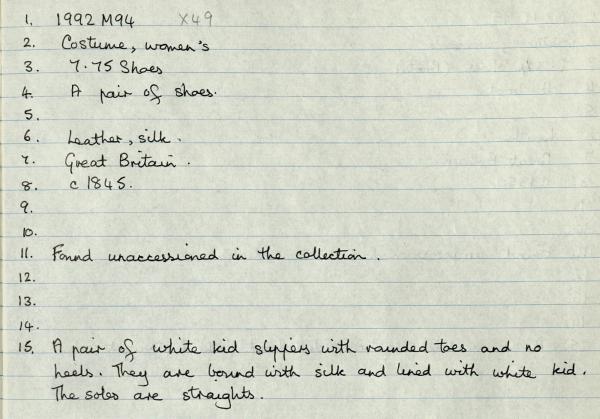 1. 1992 M94 X49
2. Costume, women's
3. 7.75 Shoes
4. A pair of shoes.
5.
6. Leather, silk.
7. Great Britain.
8. c 1845.
9.
10.
11. Found unaccessioned in the collection.
12.
13.
14.
15. A pair of white kid slippers with rounded toes and no
heels. They are bound with silk and lined with white kid.
The soles are straights.